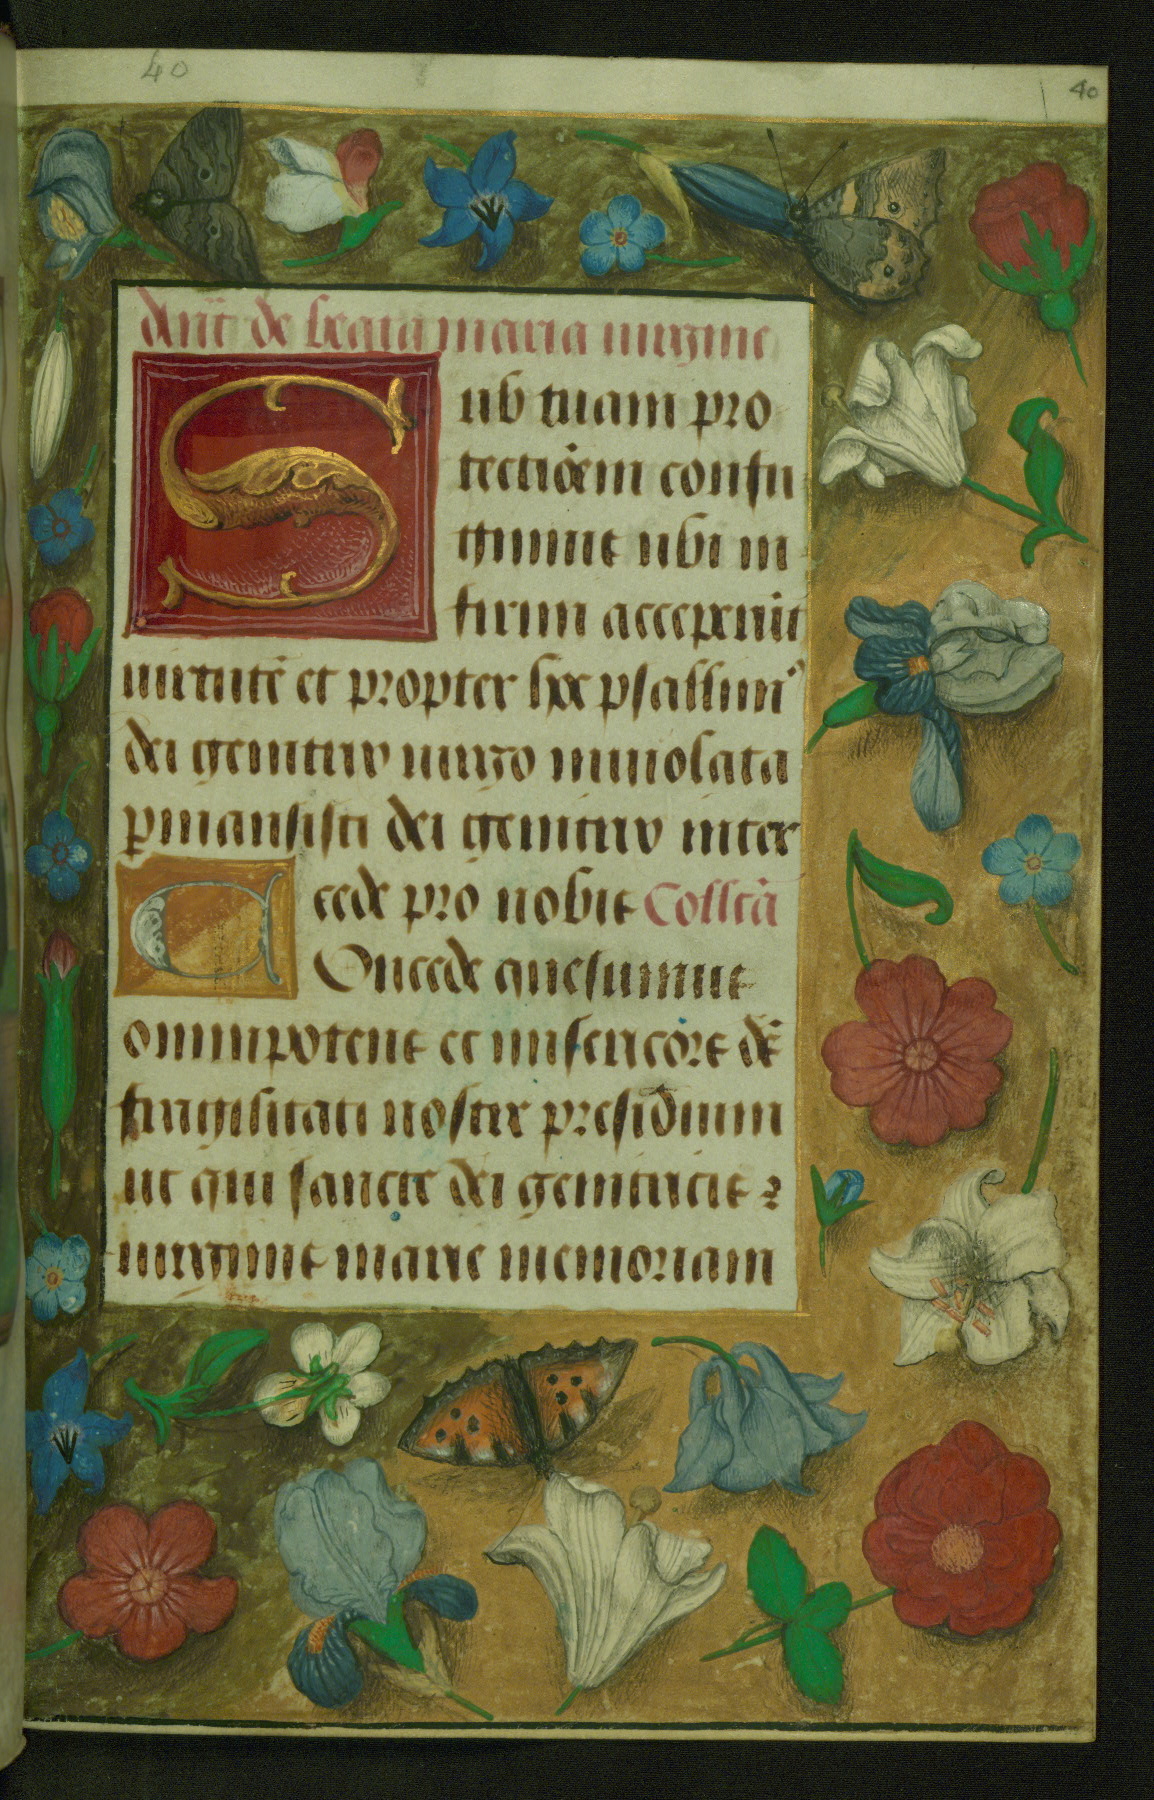 40
40
Antē de beata maria uirgine
Sub tuam pro
tectiōem confu
gimus ubi in
firmi acceperūt
uirtutē et propter hoc psallimꝰ
dei genitrix uirgo inuiolata
ꝑmansisti dei genitrix inter
cede pro nobis Collcā
Concede quesumus
omnipotens et misericors dē
fragilitati nostre presidium
ut qui sancte dei genitricis ⁊
uirginis marie memoriam